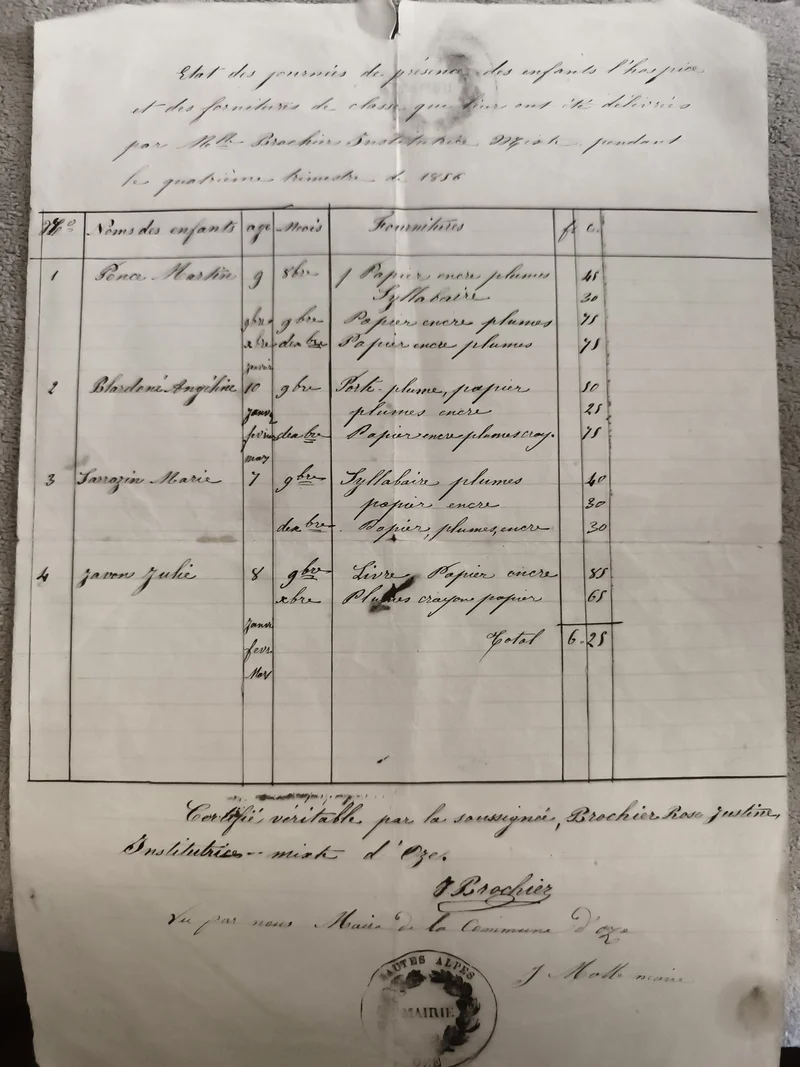 Etat des journées de présence des enfants l'hospice
et des fornitures de classe que leur ont été délivrées
par Mlle Brochier Institutrice Mixte pendant
le quatrième trimestre de 1856
Nos Noms des enfants age Mois Fournitures fr c.
1 Ponce Martin 9 8bre 1 Papier encre plumes 45
Syllabaire 30
9bre Papier encre plumes 75
xbre decbre Papier encre plumes 75
janvier
2 Blardoné Angéline 10 9bre Porte-plume, papier 50
janvr plumes encre 25
fevrier decbre Papier encre plumes cray. 75
mars
3 Sarrazin Marie 7 9bre Syllabaire plumes 40
papier encre 30
decbre Papier, plumes, encre 30
4 Javon Julie 8 9bre Livre Papier encre 85
xbre Plumes crayons papier 65
janvr
fevr Total 6.25
Mars
Certifié véritable par la soussignée, Brochier Rose Justine,
Institutrice-mixte d'Oze.
J Brochier
Vu par nous Maire de la Commune d'oze
J Molle maire
HAUTES ALPES
MAIRIE
OZE